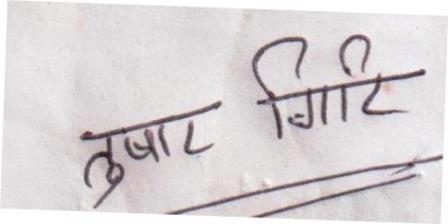 तुषार गिरि